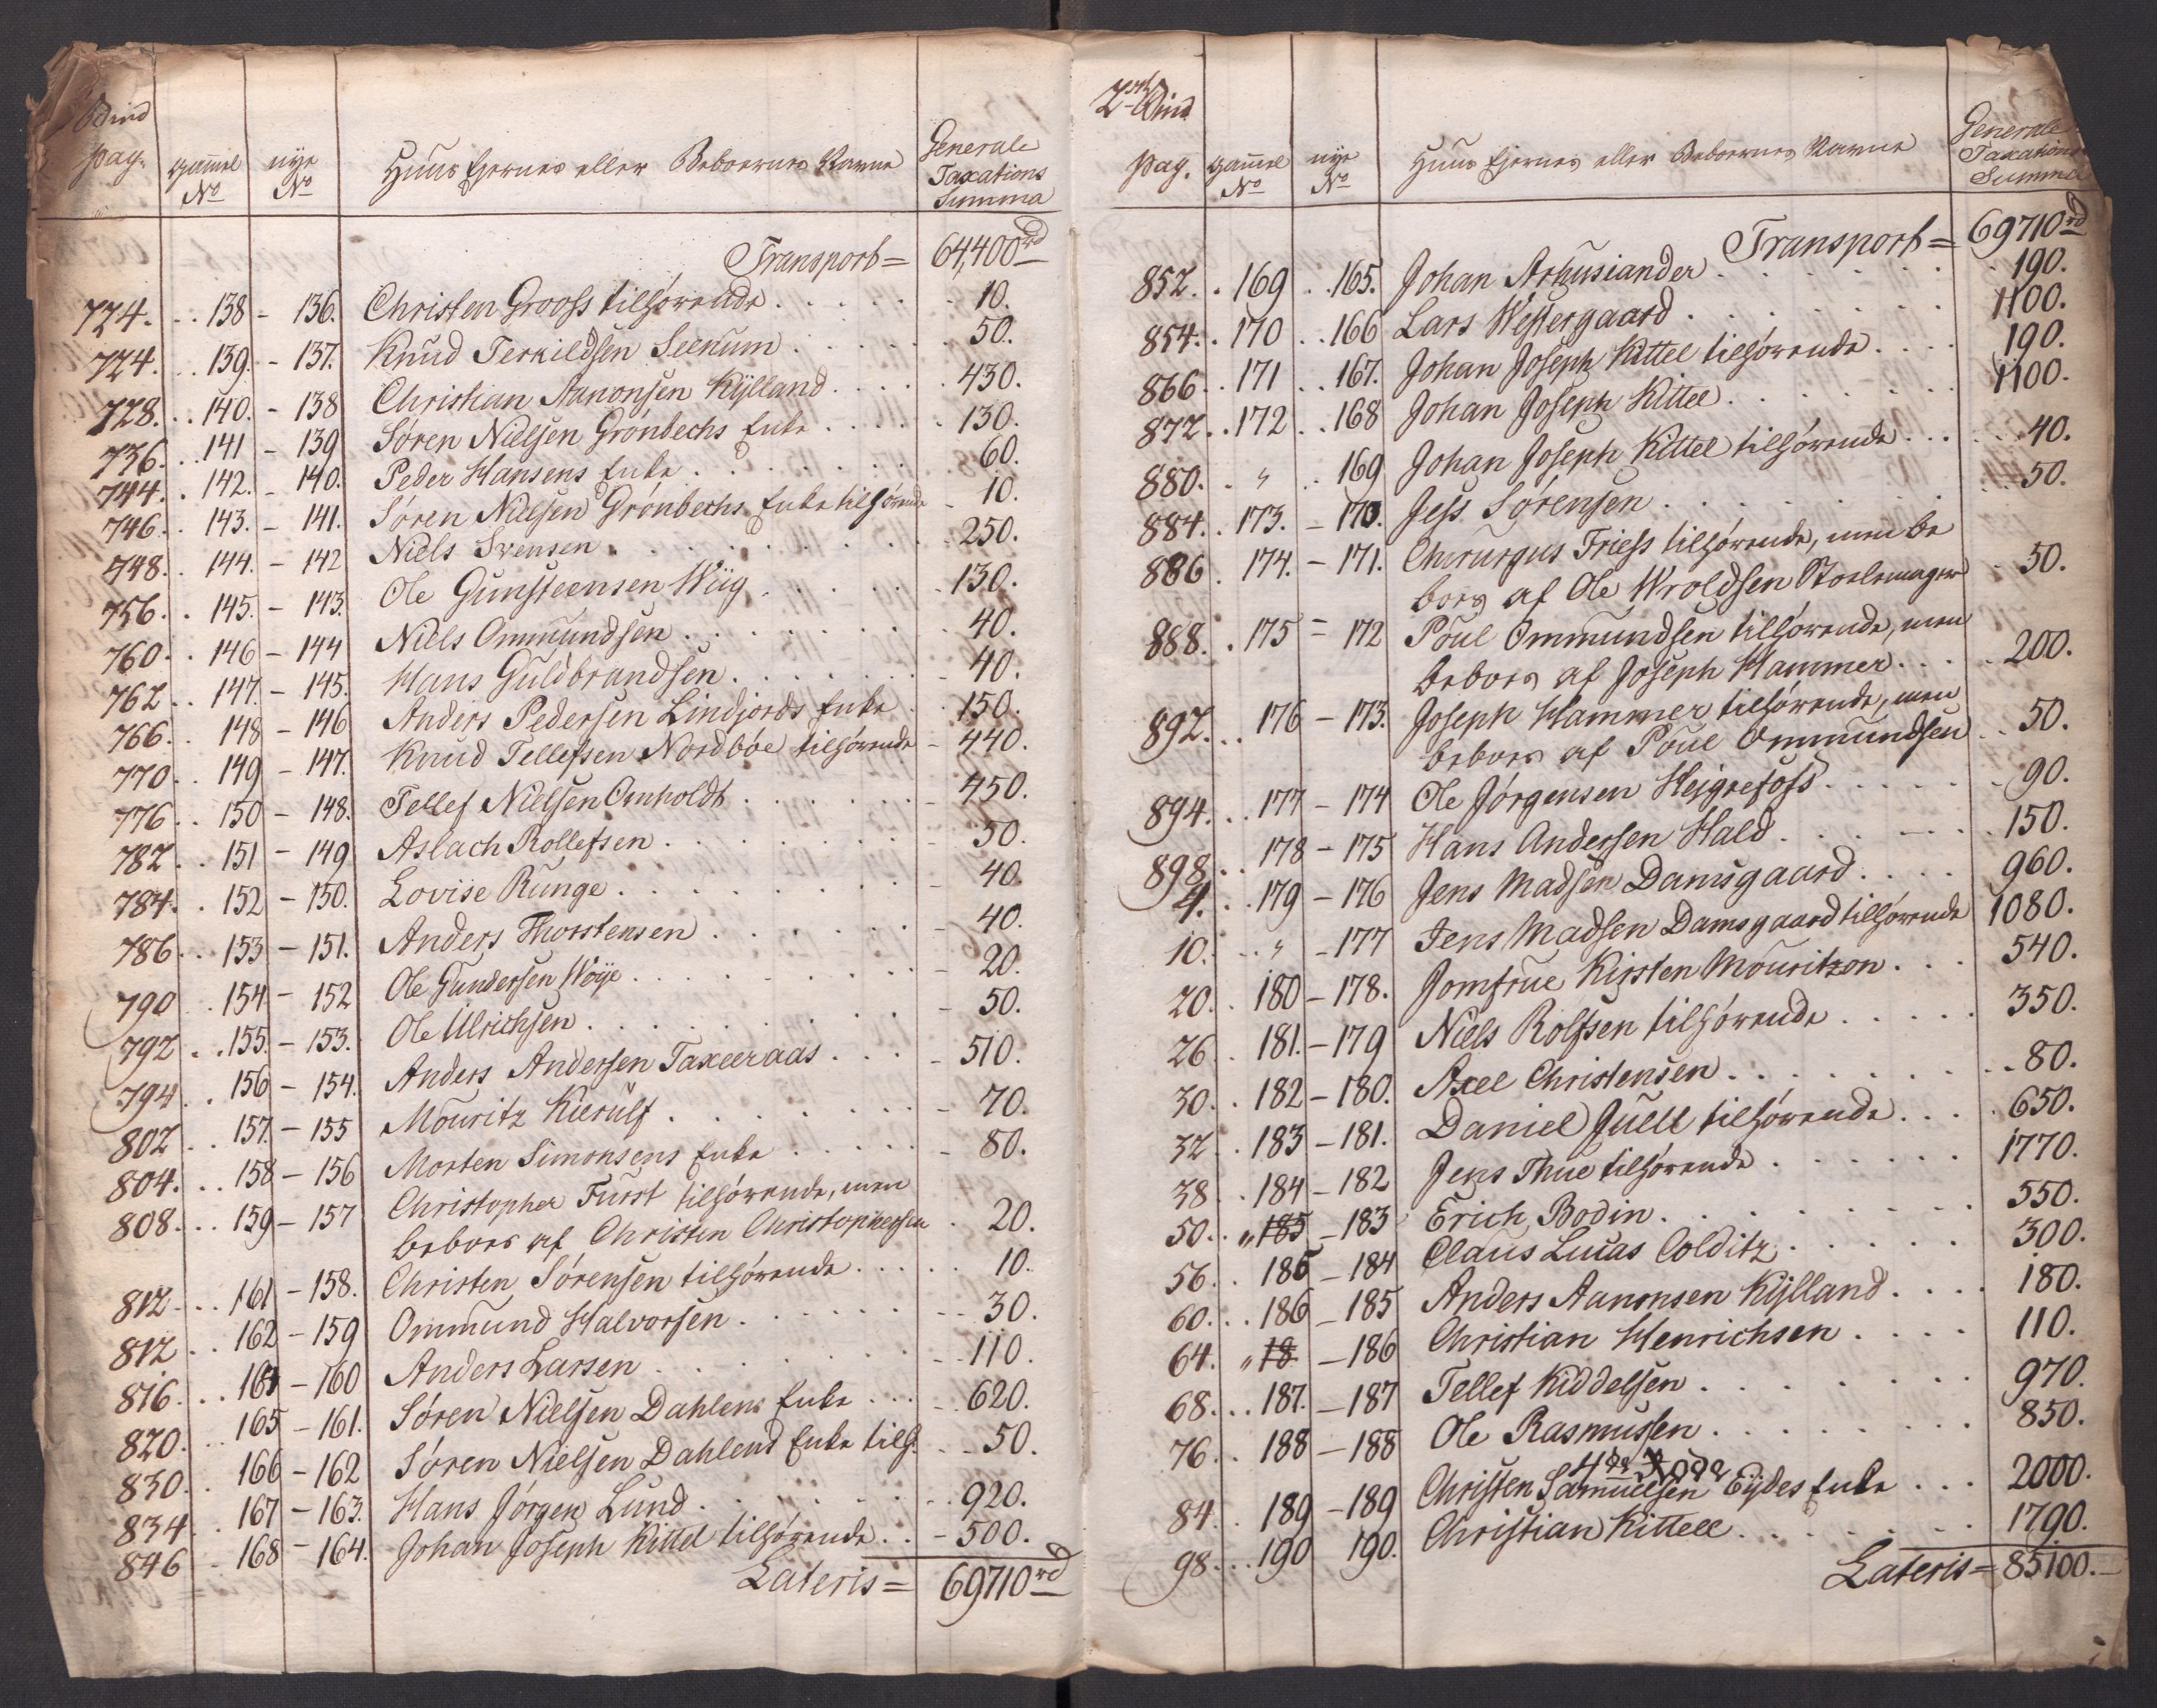 Bind
pag. gammel No nye No Huus Ejernes eller Beboernes Navne Generale Taxations Summa
Transport = 64,400 rd
724. 138 - 136. Christen Grooss tilhørende 10.
724. 139. - 137. Knud Terkildsen Seekum 50.
728. 140. - 138 Christian Aanonsen Kylland 430.
736. 141 - 139 Søren Nielsen Grønbechs Enke 130.
744. 142. - 140. Peder Hansens Enke 60.
746. 143. - 141. Søren Nielsen Grønbechs Enke tilhørende 10.
748. 144. - 142 Niels Svensen 250.
756. 145. - 143. Ole Gunsteensen Wiig 130.
760. 146 - 144 Niels Ommundsen 40.
762. 147. - 145. Hans Guldbrandsen 40.
766. 148 - 146 Anders Pedersen Lindjords Enke 150.
770. 149 - 147. Knud Tellefsen Nordbøe tilhørende 440.
776. 150 - 148. Tellef Nielsen Omholdt 450.
782. 151 - 149 Aslach Rollefsen 50.
784. 152 - 150. Lovise Runge 40.
786. 153 - 151. Anders Thorstensen 40.
790 154 - 152 Ole Gundersen Woye 20.
792. 155. - 153. Ole Ulrichsen 50.
794. 156 - 154. Anders Andersen Taxeeraas 510.
802. 157. - 155 Mouritz Kierulf 70.
804. 158 - 156 Morten Simonsens Enke 80.
808. 159 - 157 Christopher Furst tilhørende, men
beboes af Christen Christophersen 20.
812. 161 - 158. Christen Sørensen tilhørende 10.
812. 162 - 159 Ommund Halvorsen 30.
816. 164 - 160 Anders Larsen 110.
820. 165 - 161. Søren Nielsen Dahlens Enke 620.
830. 166 - 162 Søren Nielsen Dahlens Enke tilh. 50.
834. 167 - 163. Hans Jørgen Lund 920.
846 168 - 164. Johan Joseph Kittel tilhørende 500.
Lateris = 69710 rd
2det Bind
pag. gammel No nye No Huus Ejernes eller Beboernes Navne Generale Taxations Summa
Transport = 69710 rd
852. 169 165. Johan Arhusiander 190.
854. 170 166 Lars Westergaard 1100.
866. 171 167. Johan Joseph Kittel tilhørende 190.
872. 172 168 Johan Joseph Kittel 1100.
880. " 169 Johan Joseph Kittel tilhørende 40.
884. 173. - 170. Jess Sørensen 50.
886. 174. - 171. Chirurgus Friess tilhørende, men be
boes af Ole Wroldsen Stoelemager 50.
888. 175 = 172 Poul Ommundsen tilhørende, men
beboes af Joseph Hammer 200.
892. 176 - 173. Joseph Hammer tilhørende, men
beboes af Poul Ommundsen 50.
894. 177 - 174 Ole Jørgensen Hejgrefoss 90.
898. 178 - 175 Hans Andersen Hald 150.
4. 179 - 176 Jens Madsen Damsgaard 960.
10. " - 177 Jens Madsen Damsgaard tilhørende 1080.
20. 180 - 178. Jomfrue Kirsten Mouritzon 540.
26. 181. - 179 Niels Rolfsen tilhørende 350.
30. 182 - 180. Axel Christensen 80.
32 183 - 181. Daniel Juell tilhørende 650.
38. 184 - 182 Jens Thue tilhørende 1770.
50. " 185 - 183 Erich Bodin 550.
56. 185 - 184 Claus Lucas Colditz 300.
60. 186 - 185 Anders Aanonsen Kylland 180.
64. " 18 - 186 Christian Henrichsen 110.
68. 187. - 187 Tellef Kiddelsen 970.
76. 188 - 188 Ole Rasmussen 850.
4de Rode
84. 189 - 189 Christen Samuelsen Eydes Enke 2000.
98. 190 190. Christian Kittell 1790.
Lateris = 85100.